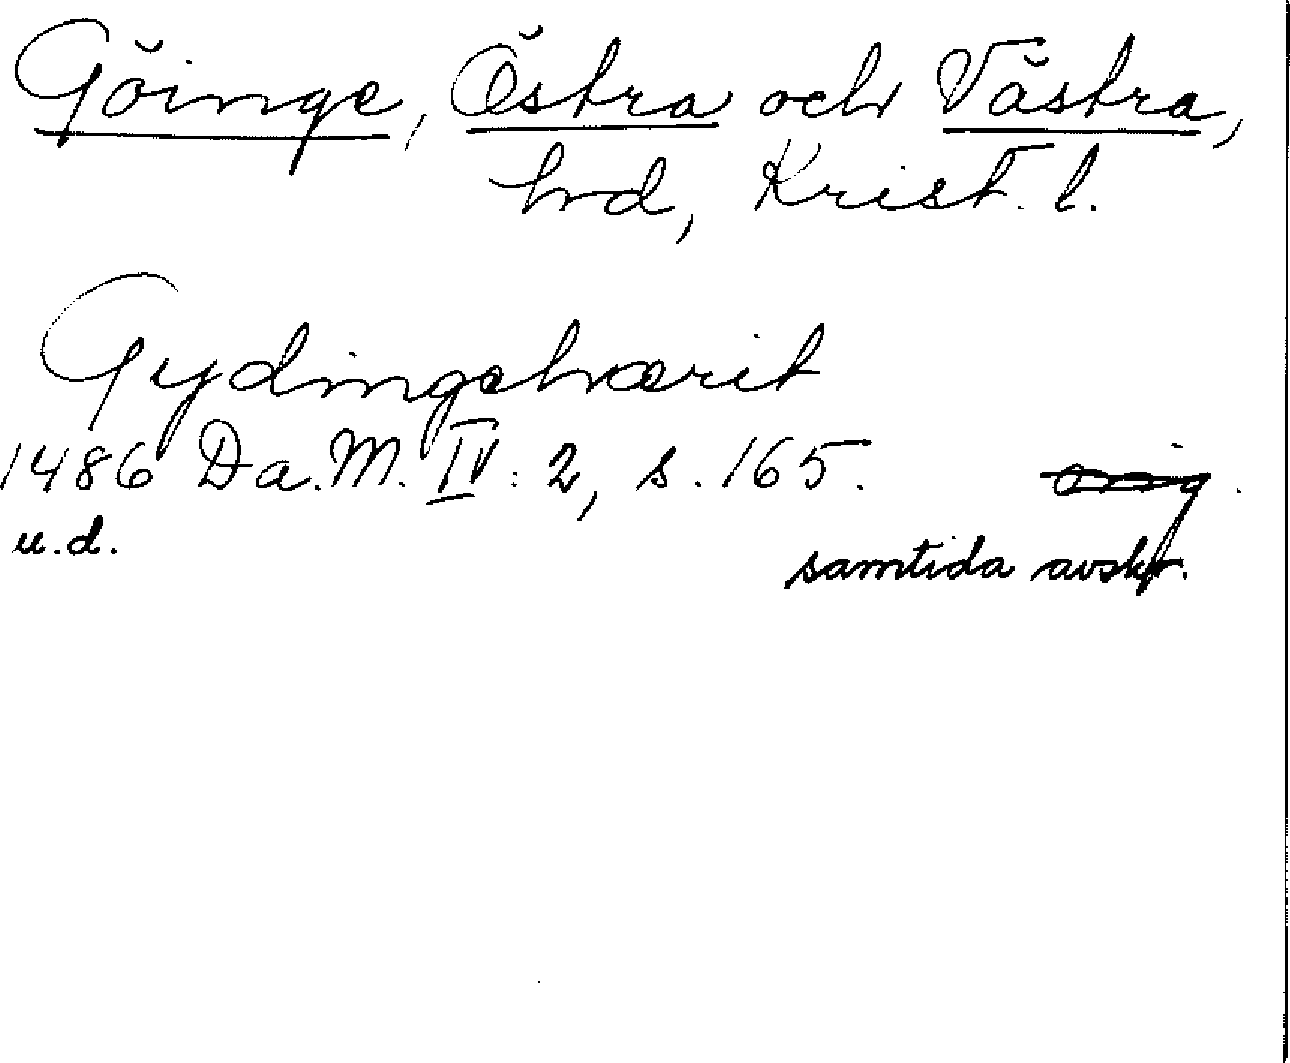 Göinge, Östra och Västra,
hrd, Krist. l.
Gydingehærit
1486 Da. M. IV: 2, s. 165. orig.
u.d.
samtida avskr.